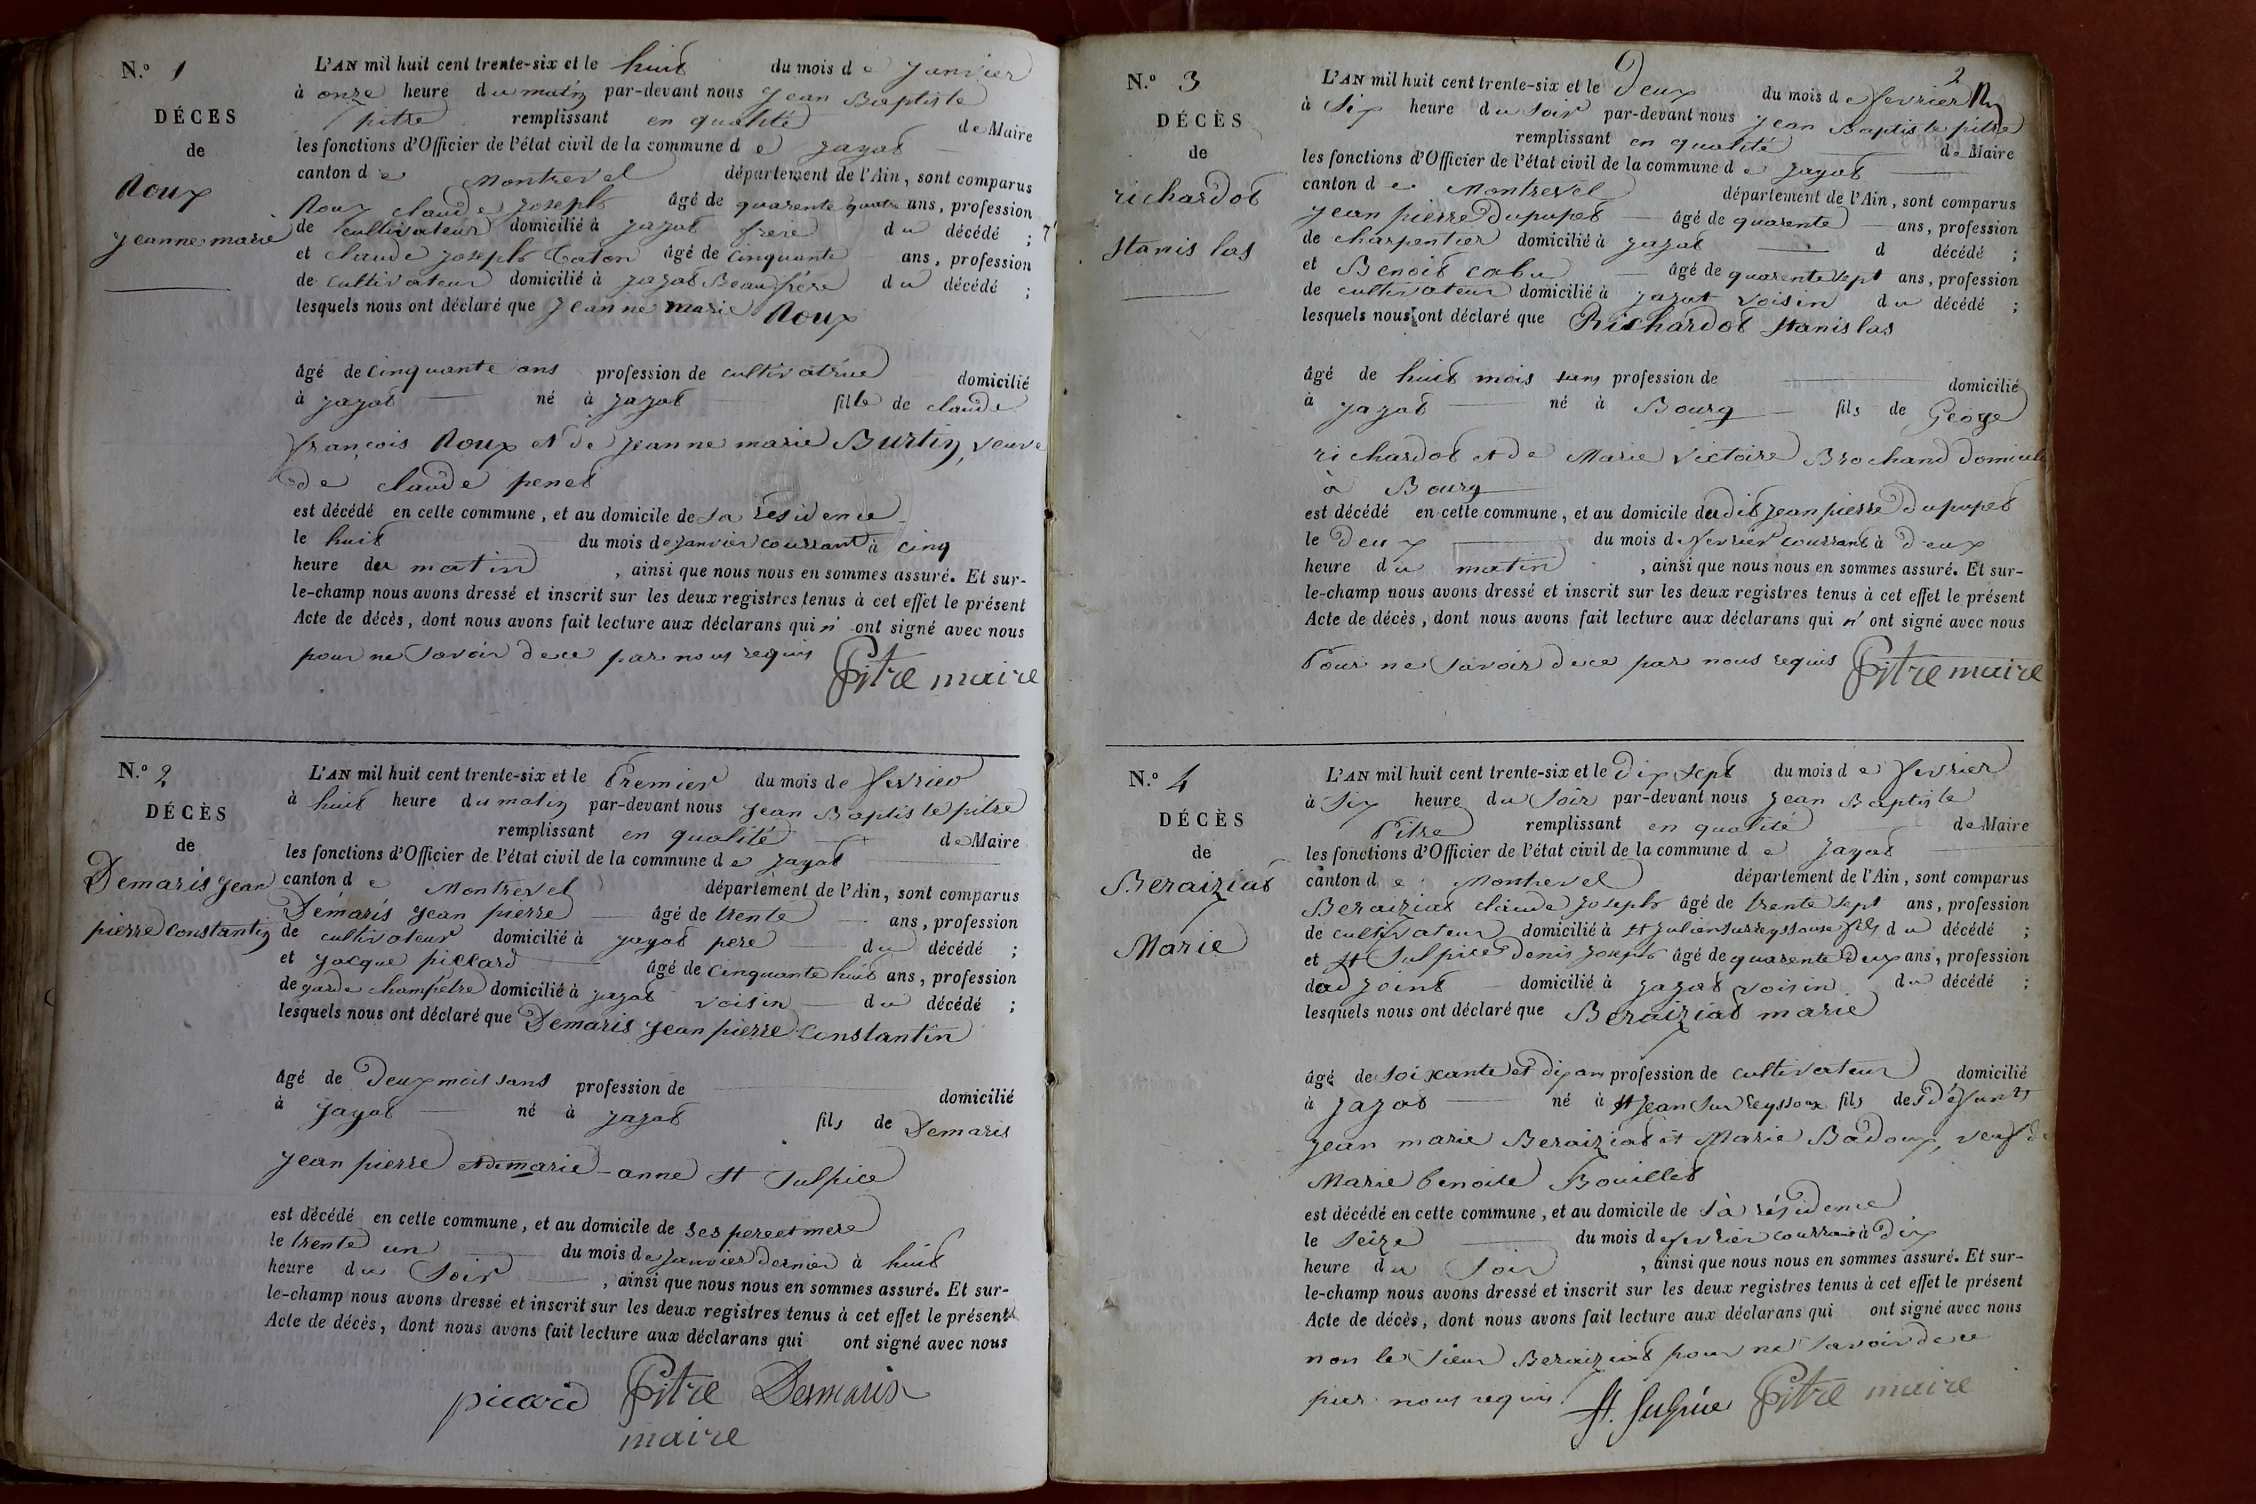 N.º 1
DÉCES
de
Roux
jeanne marie
L'AN mil huit cent trente-six et le huit du mois de janvier
à onze heure du matin par-devant nous jean Baptiste
pitre remplissant en qualité de Maire
les fonctions d'Officier de l'état civil de la commune de jayat
canton de Montrevel département de l'Ain, sont comparus
Roux claude joseph âgé de quarente quatre ans, profession
de cultivateur domicilié à jayat frere du décédé ;
et claude joseph Caton âgé de cinquante ans, profession
de cultivateur domicilié à jayat Beaufrére du décédé ;
lesquels nous ont déclaré que jeanne marie Roux
âgé de cinquante ans profession de cultivatrice domicilié
à jayat né à jayat fille de claude
françois Roux et de jeanne marie Burtin, veuve
de claude penet
est décédé en cette commune, et au domicile de sa résidence
le huit du mois de janvier courrant à cinq
heure du matin , ainsi que nous nous en sommes assuré. Et sur-
le-champ nous avons dressé et inscrit sur les deux registres tenus à cet effet le présent
Acte de décès, dont nous avons fait lecture aux déclarans qui n' ont signé avec nous
pour ne savoir de ce par nous requis Pitre maire
N.º 2
DÉCÈS
de
Demaris jean
pierre constantin
L'AN mil huit cent trente-six et le Premier du mois de fevrier
à huit heure du matin par-devant nous jean Baptiste pitre
remplissant en qualité de Maire
les fonctions d'Officier de l'état civil de la commune de jayat
canton de Montrevel département de l'Ain, sont comparus
Demaris jean pierre âgé de trente ans, profession
de cultivateur domicilié à jayat pere du décédé ;
et jacque piccard âgé de cinquante huit ans, profession
de garde champêtre domicilié à jayat voisin du décédé ;
lesquels nous ont déclaré que Demaris jean pierre constantin
âgé de Deux mois sans profession de domicilié
à jayat né à jayat fils de Demaris
jean pierre et de marie-anne St Sulpice
est décédé en cette commune, et au domicile de ses pere et mere
le trente un du mois de janvier dernier à huit
heure du Soir , ainsi que nous nous en sommes assuré. Et sur-
le-champ nous avons dressé et inscrit sur les deux registres tenus à cet effet le présent
Acte de décès, dont nous avons fait lecture aux déclarans qui ont signé avec nous
picard Pitre Demaris
maire
2
N.º 3
DÉCÈS
de
richardot
stanislas
L'AN mil huit cent trente-six et le Deux du mois de fevrier
à Six heure du soir par-devant nous jean Baptiste pitre
remplissant en qualité de Maire
les fonctions d'Officier de l'état civil de la commune de jayat
canton de Montrevel département de l'Ain, sont comparus
jean pierre Dupupet âgé de quarente ans, profession
de charpentier domicilié à jayat d décédé ;
et Benoit cabu âgé de quarente sept ans, profession
de cultivateur domicilié à jayat voisin du décédé ;
lesquels nous ont déclaré que Richardot stanislas
âgé de huit mois sans profession de domicilié
à jayat né à Bourg fils de George
richardot et de Marie Victoire Brochand domicile
à Bourg
est décédé en cette commune, et au domicile dudit jean pierre Dupupet
le Deux du mois de fevrier courrant à deux
heure du matin , ainsi que nous nous en sommes assuré. Et sur-
le-champ nous avons dressé et inscrit sur les deux registres tenus à cet effet le présent
Acte de décès, dont nous avons fait lecture aux déclarans qui n' ont signé avec nous
Pour ne savoir de ce par nous requis Pitre maire
N.º 4
DÉCÈS
de
Beraiziat
Marie
L'AN mil huit cent trente-six et le Dix sept du mois de fevrier
à Six heure du Soir par-devant nous jean Baptiste
Pitre remplissant en qualité de Maire
les fonctions d'Officier de l'état civil de la commune de jayat
canton de Montrevel département de l'Ain, sont comparus
Beraiziat claude joseph âgé de trente sept ans, profession
de cultivateur domicilié à St julien sur reyssouse fils du décédé ;
et St Sulpice denis joseph âgé de quarente Deux ans, profession
d'adjoint domicilié à jayat voisin du décédé ;
lesquels nous ont déclaré que Beraiziat marie
âgé de soixante et dix ans profession de cultivateur domicilié
à jayat né à St jean sur reyssouse fils des Défunts
jean marie Beraiziat et Marie Badoux, veuf de
Marie benoite Bouillet
est décédé en cette commune, et au domicile de sa résidence
le seize du mois de fevrier courrant à dix
heure du Soir , ainsi que nous nous en sommes assuré. Et sur-
le-champ nous avons dressé et inscrit sur les deux registres tenus à cet effet le présent
Acte de décès, dont nous avons fait lecture aux déclarans qui ont signé avec nous
non le sieur Beraiziat pour ne savoir de ce
par nous requis St. Sulpice Pitre maire